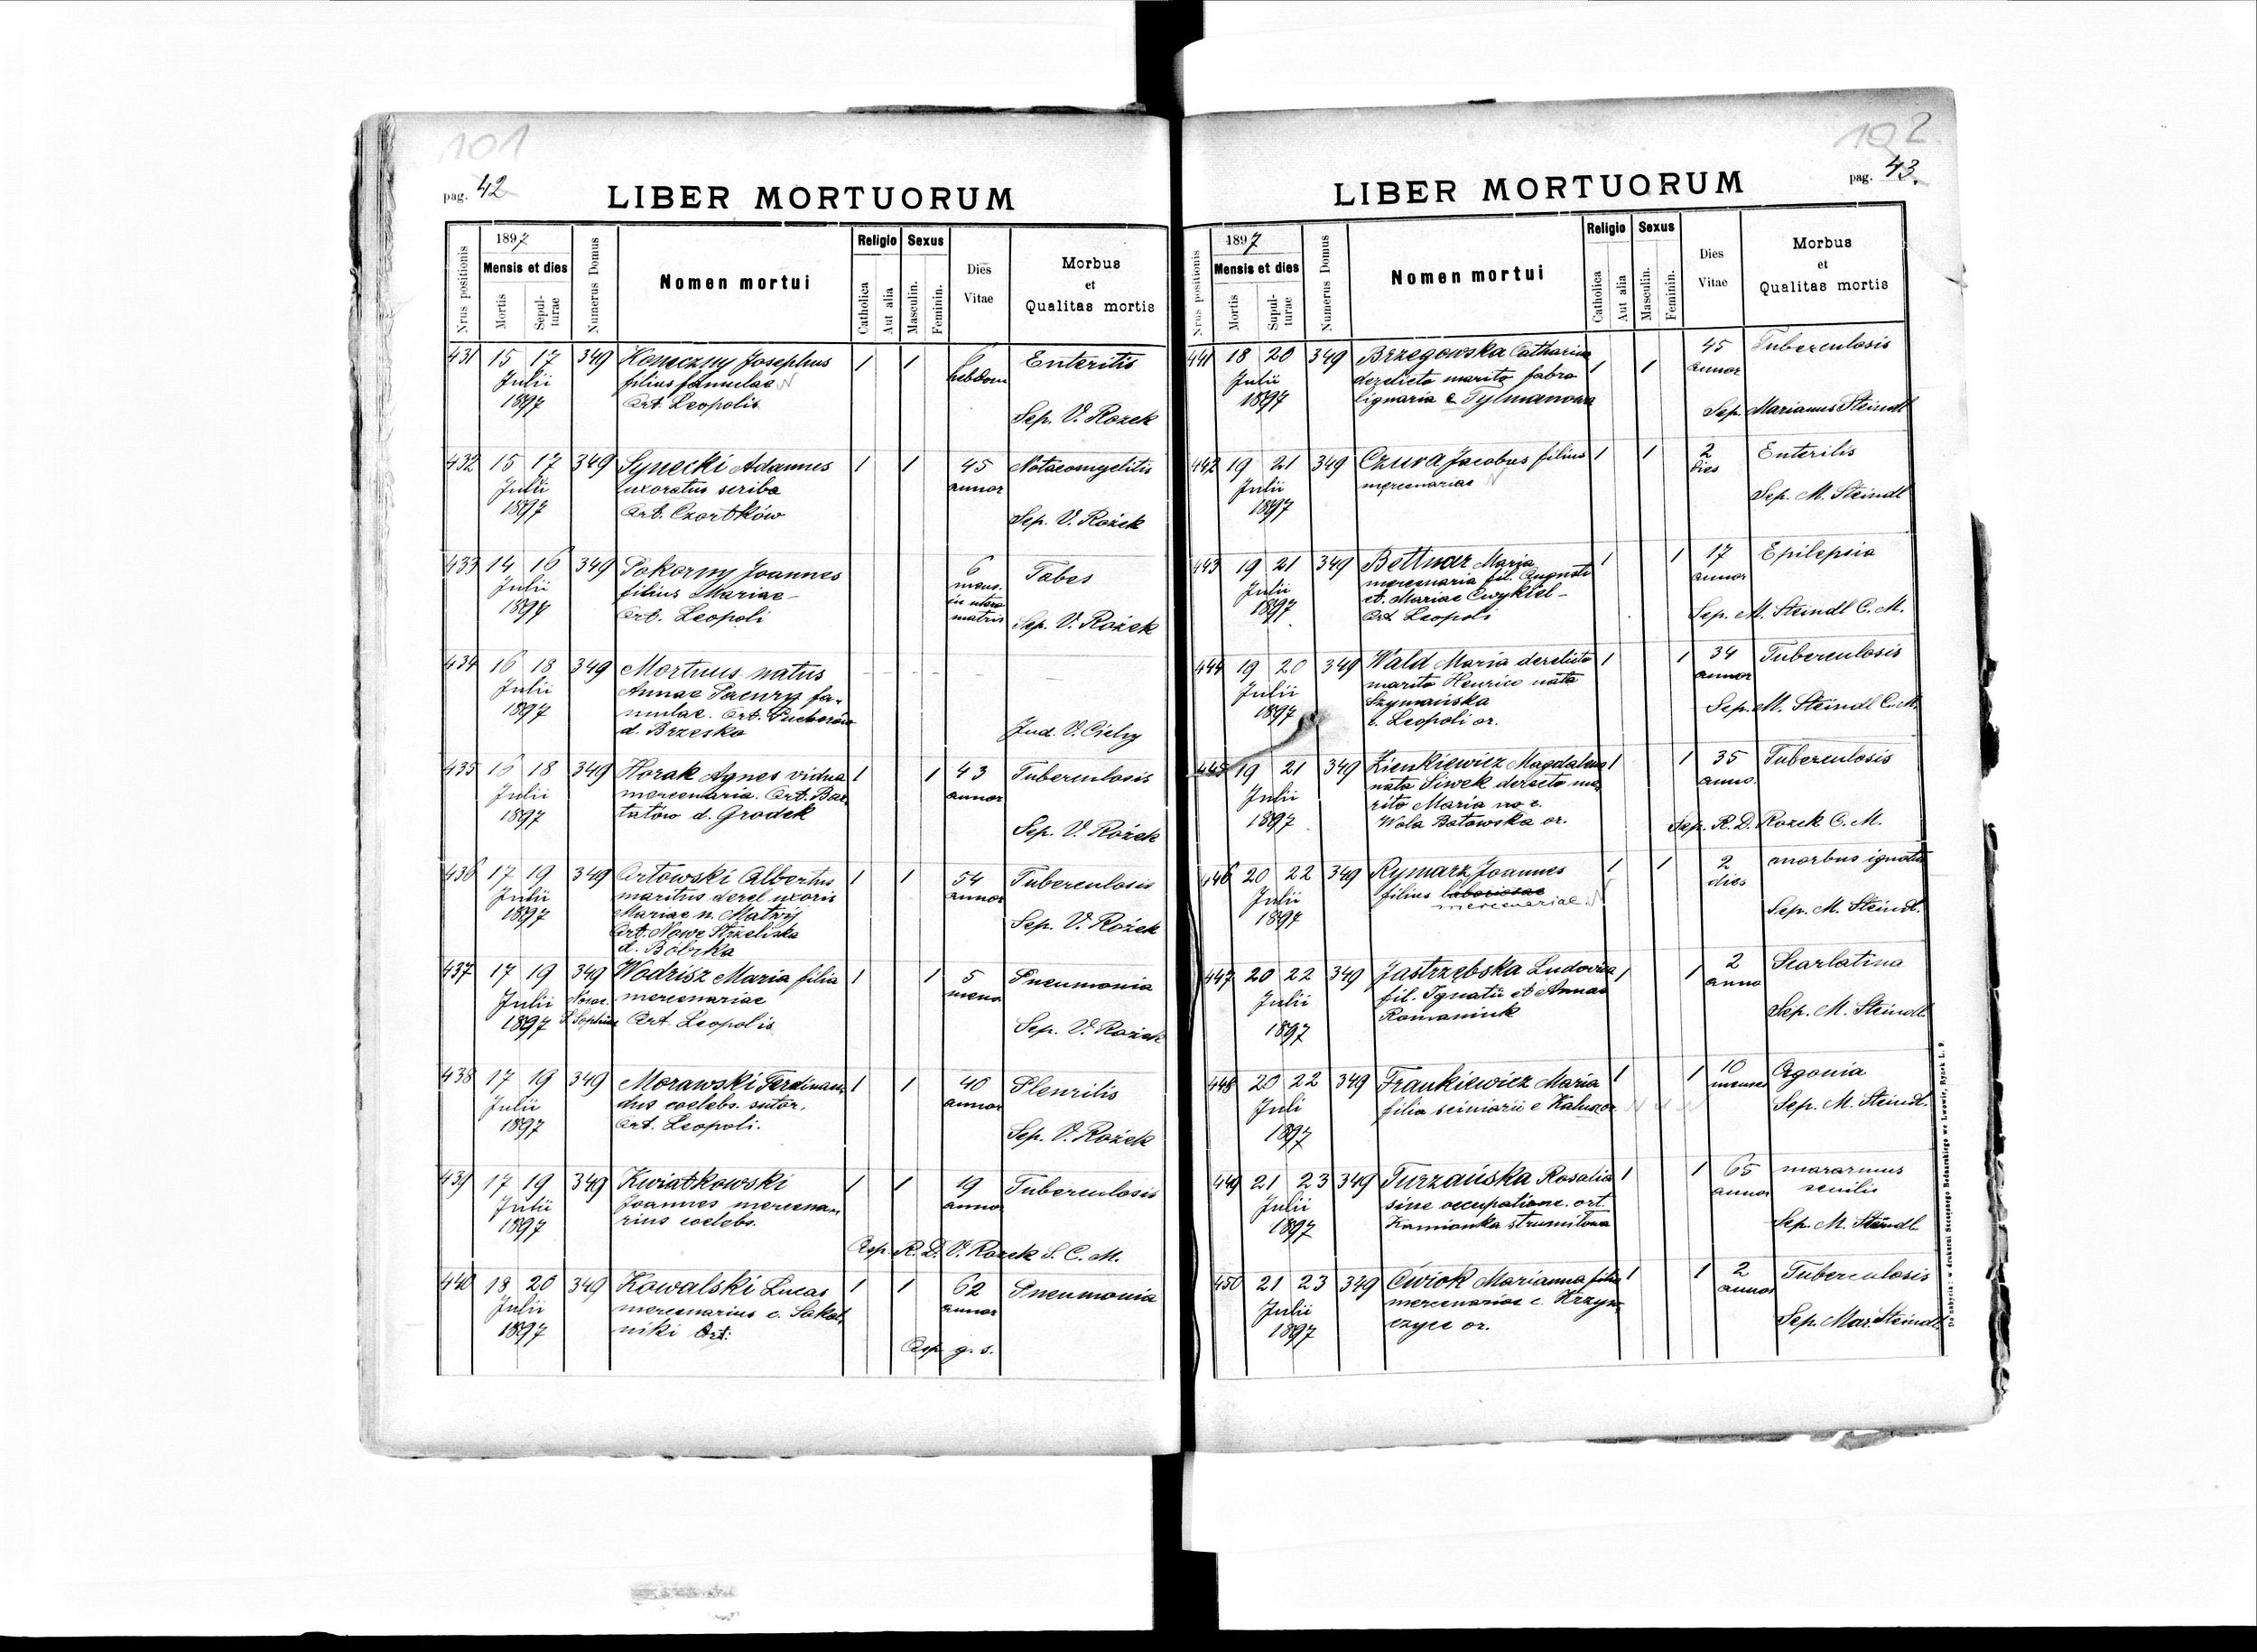 101
pag. 42
LIBER MORTUORUM
Nrus positionis
1897
Mensis et dies
Mortis
Sepulturae
Numerus Domus
Nomen mortui
Religio
Catholica
Aut alia
Sexus
Masculin.
Feminin.
Dies Vitae
Morbus
et
Qualitas mortis
431 15 17 349 Koneczny Josephus 1 1 6 Enteritis
Julii filius famulae N hebdom
1897 Ort. Leopolis Sep. V. Rożek
432 15 17 349 Synecki Adamus 1 1 45
Julii uxoratus scriba annor
1897 Ort. Czortków Sep. V. Rożek
433 14 16 349 Pokorny Joannes 6 Tabes
Julii filius Mariae - mens.
1897 Ort. Leopoli in utero
matris Sep. V. Rożek
434 16 18 349 Mortuus natus
Julii Annae Pacury fa-
1897 mulae. Ort.
d. Brzesko Jud. V. Cichy
435 16 18 349 Horak Agnes vidua 1 1 43 Tuberculosis
Julii mercenaria. Ort. Bar- annor
1897 tatów d. Gródek Sep. V. Rożek
436 17 19 349 Ortowski Albertus 1 1 54 Tuberculosis
Julii maritus derel uxoris annor
1897 Mariae n. Matwij Sep. V. Rożek
Ort. Nowe Strzeliska
d. Bóbrka
437 17 19 349 Wodrisz Maria filia 1 1 5 Pneumonia
Julii mercenariae mens
1897 S. Sophiae Ort. Leopolis Sep. V. Rożek
438 17 19 349 Morawski Ferdinan- 1 1 40 Pleuritis
Julii dus coelebs. sutor. annor
1897 Ort. Leopoli. Sep. V. Rożek
439 17 19 349 Kwiatkowski 1 1 19 Tuberculosis
Julii Joannes mercena- annor
1897 rius coelebs.
R. D. V. Rożek S. C. M.
440 18 20 349 Kowalski Lucas 1 1 62 Pneumonia
Julii mercenarius e. Sokol- annor
1897 niki Ort.
g. s.
102
pag. 43.
LIBER MORTUORUM
Nrus positionis
1897
Mensis et dies
Mortis
Sepulturae
Numerus Domus
Nomen mortui
Religio
Catholica
Aut alia
Sexus
Masculin.
Feminin.
Dies Vitae
Morbus
et
Qualitas mortis
441 18 20 349 Brzegowska Catharina 1 1 45 Tuberculosis
Julii derelicta marito fabro annor
1897 lignario e Tylmanowa Sep. Marianus Steindl
442 19 21 349 Czura Jacobus filius 1 1 2 Enteritis
Julii mercenariae N dies
1897 Sep. M. Steindl
443 19 21 349 Bettnar Maria 1 1 17 Epilepsia
Julii mercenaria fil. Augusti annor
1897 et. Mariae Cwyktel -
Ort Leopoli Sep. M. Steindl C. M.
444 19 20 349 Wald Maria derelicta 1 1 34 Tuberculosis
Julii marito Henrico nata annor
1897 Szymańska Sep. M. Steindl C. M.
e. Leopoli or.
445 19 21 349 Zienkiewicz Magdalena 1 1 35 Tuberculosis
Julii nata Siwek derecto ma- anno.
1897 rito Maria no e.
Wola Batowska or. Sep. R. D. Rożek C. M.
446 20 22 349 Rymarz Joannes 1 1 2 morbus ignotus
Julii filius laboriosae dies
1897 mercenariae. N Sep. M. Steindl.
447 20 22 349 Jastrzębska Ludovica 1 1 2 Scarlatina
Julii fil. Ignatii et Annae anno
1897 Romaniuk Sep. M. Steindl
448 20 22 349 Frankiewicz Maria 1 1 10 Agonia
Juli filia e Kalusz or. mense
1897 Sep. M. Steindl.
449 21 23 349 Turzańska Rosalia 1 1 65 mararmus
Julii sine occupatione. ort. annor senilis
1897 Kamionka strumiłowa Sep. M. Steindl
450 21 23 349 Ćwiok Marianna filia 1 1 2 Tuberculosis
Julii mercenariae e. Krzyw- annor
1897 czyce or. Sep. Mar. Steindl
Do nabycia: w drukarni Szczęsnego Bednarskiego we Lwowie, Rynek L. 9.